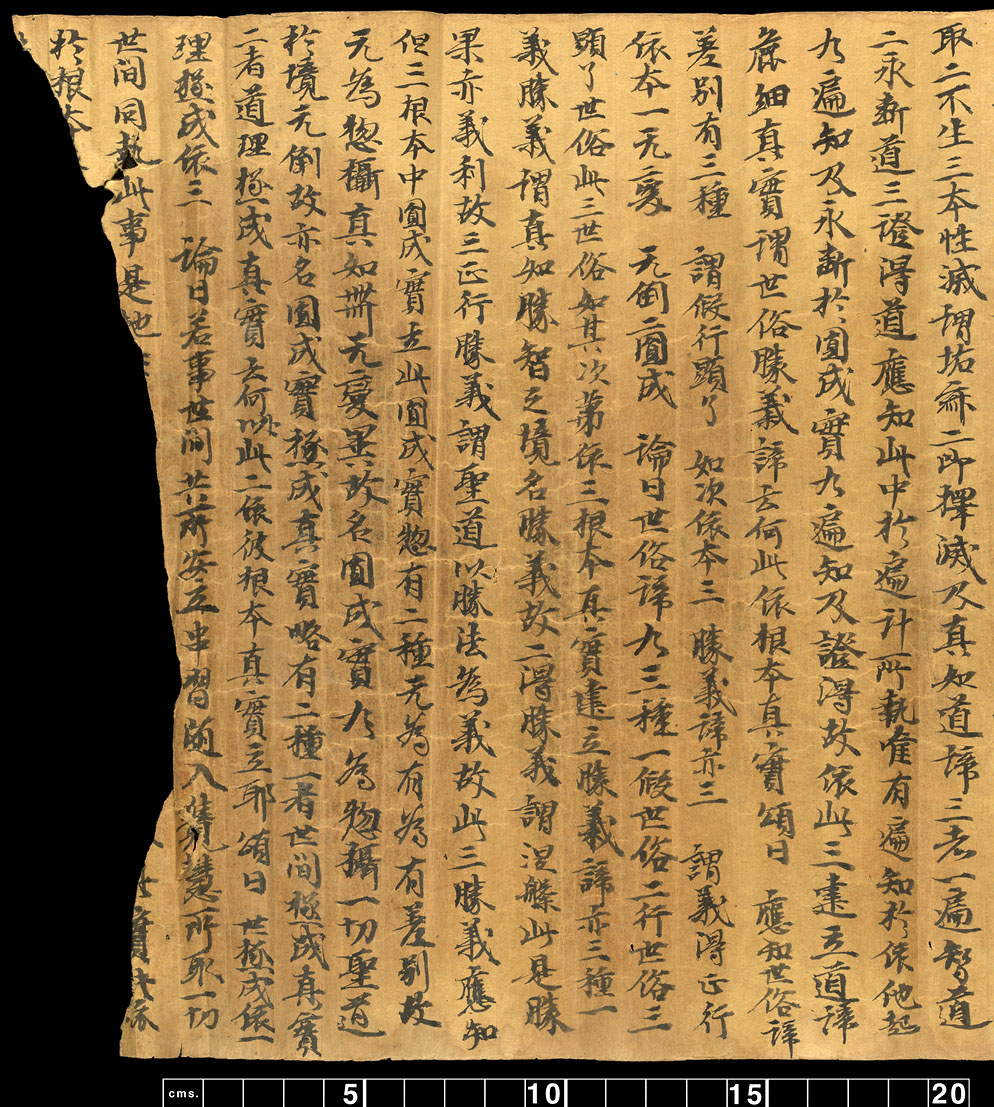 取二不生三本性滅謂垢寂二即擇滅及真如道諦三者一遍智道
二永斷道三證得道應知此中於遍計所執唯有遍知於依他起
有遍知及永斷於圓成實有遍知及證得故依此三建立道諦
麁細真實謂世俗勝義諦云何此依根本真實頌曰 應知世俗諦
差別有三種 謂假行顯了 如次依本三 勝義諦亦三 謂義得正行
依本一无變 无倒二圓成 論曰世俗諦有三種一假世俗二行世俗三
顯了世俗此三世俗如其次第依三根本真實建立勝義諦亦三種一
義勝義謂真如勝智之境名勝義故二得勝義謂涅槃此是勝
果亦義利故三正行勝義謂聖道以勝法為義故此三勝義應知
但三根本中圓成實立此圓成實惣有二種无為有為有差別故
无為惣攝真如卌无變異故名圓成實有為惣攝一切聖道
於境无倒故亦名圓成實極成真實略有二種一者世間極成真實
二者道理極成真實云何以此二依彼根本真實立耶頌曰 世極成依一
理極成依三 論曰若事世間共所安立串習隨入覺慧所取一切
世間同執此事是地
於根本
cms. 5 10 15 20